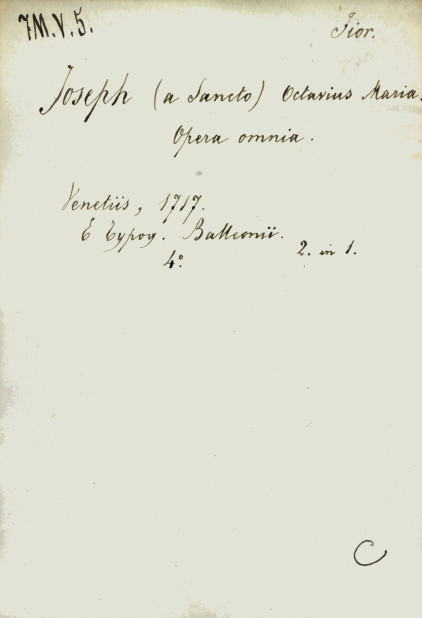 7M.V.5.
Fior.
Joseph (a Sancto) Octavius Maria.
Opera omnia.
Venetiis, 1717.
E Typog. Balleonii.
4°
2. in 1.
C